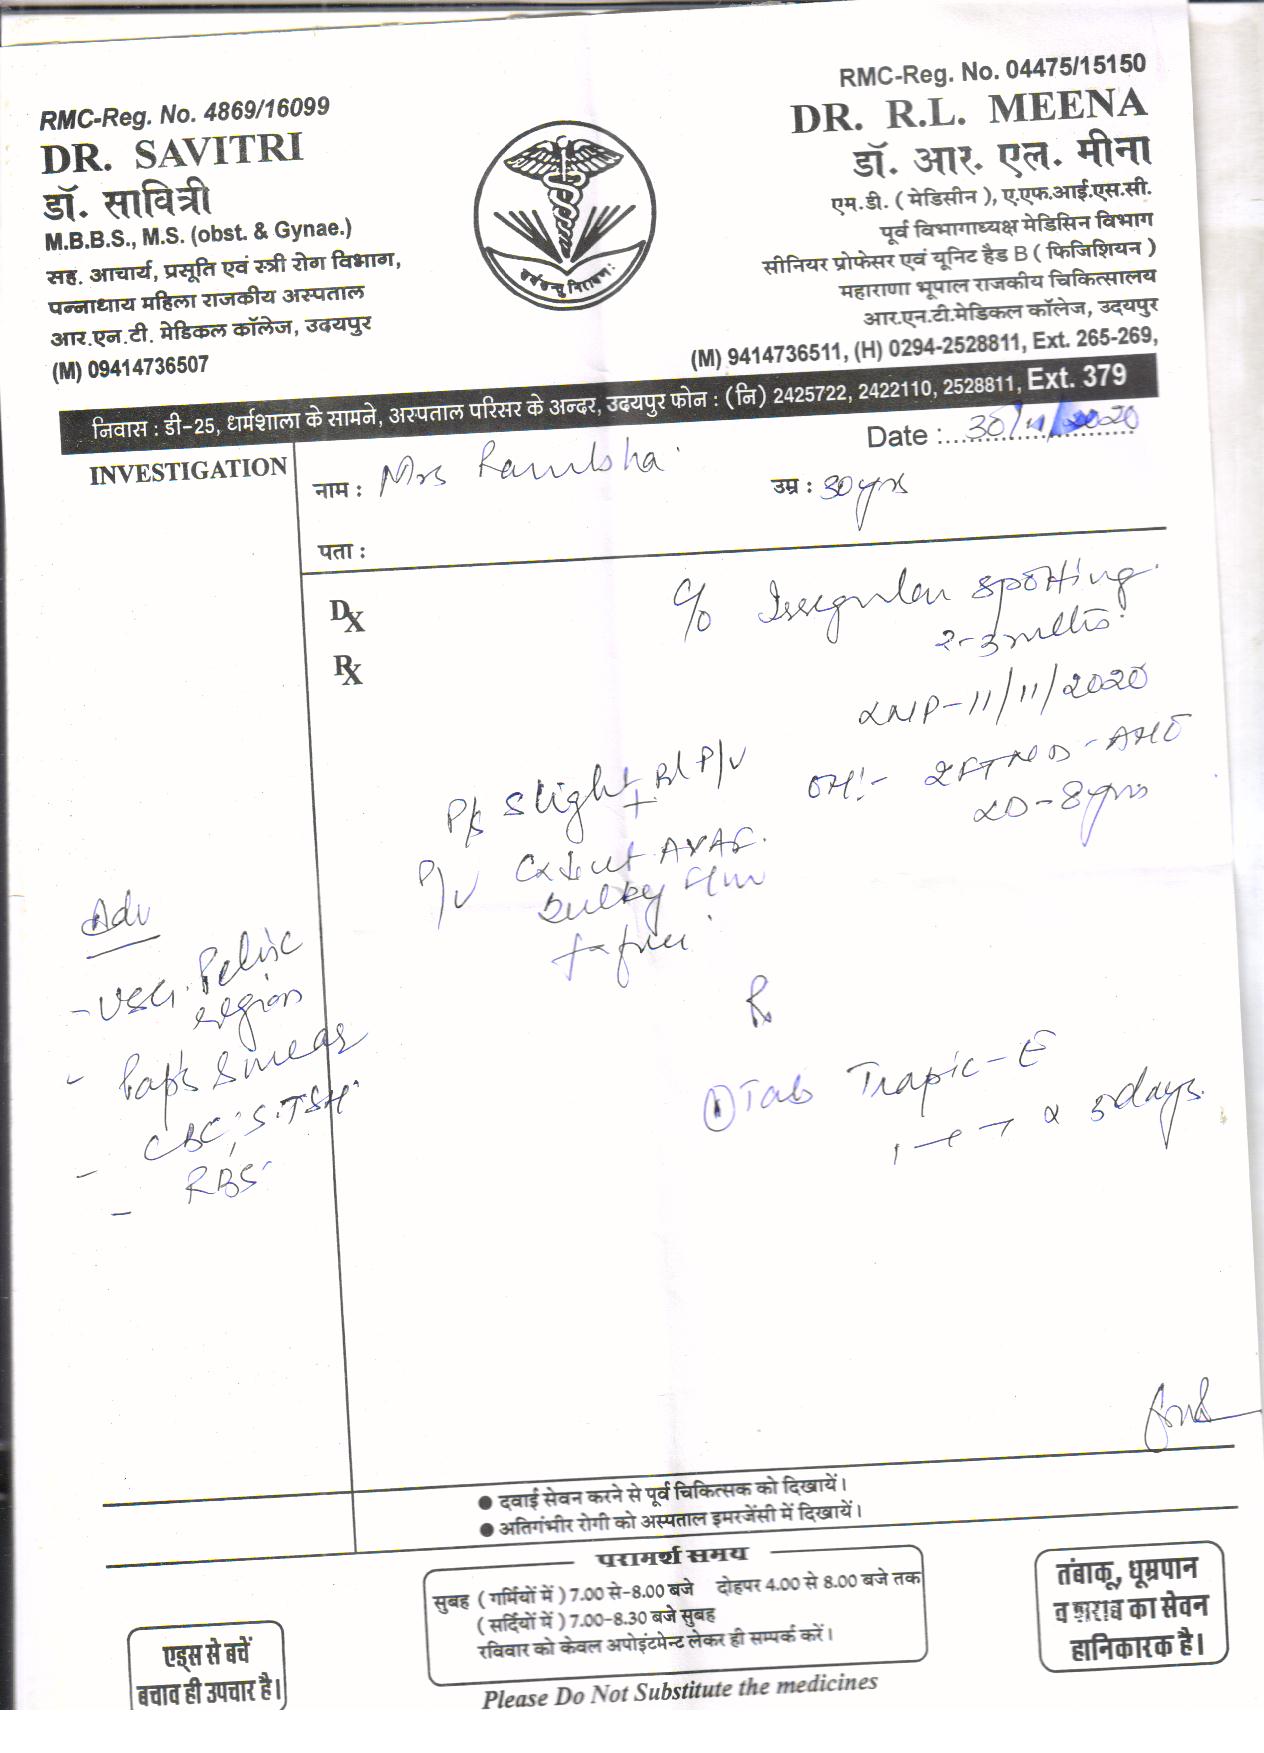 RMC-Reg. No. 4869/16099
DR. SAVITRI
डॉ. सावित्री
M.B.B.S., M.S. (obst. & Gynae.)
सह. आचार्य, प्रसूति एवं स्त्री रोग विभाग,
पन्नाधाय महिला राजकीय अस्पताल
आर.एन.टी. मेडिकल कॉलेज, उदयपुर
(M) 09414736507
RMC-Reg. No. 04475/15150
DR. R.L. MEENA
डॉ. आर. एल. मीना
एम.डी. ( मेडिसीन ), ए.एफ.आई.एस.सी.
पूर्व विभागाध्यक्ष मेडिसिन विभाग
सीनियर प्रोफेसर एवं यूनिट हैड B ( फिजिशियन )
महाराणा भूपाल राजकीय चिकित्सालय
आर.एन.टी.मेडिकल कॉलेज, उदयपुर
(M) 9414736511, (H) 0294-2528811, Ext. 265-269,
निवास : डी-25, धर्मशाला के सामने, अस्पताल परिसर के अन्दर, उदयपुर फोन : (नि) 2425722, 2422110, 2528811, Ext. 379
Date : 30/11/2020
INVESTIGATION
नाम : Mrs
उम्र : 30yrs
पता :
DX
RX
c/o Irregular spotting
2-3 mths
LMP-11/11/2020
OH:- 2FTND-
LD-8yrs
P/s Slight Bl P/v
+
P/v Cx AVAF
Bulky
f-free
Adv
- USG. Pelvic
region
- Pap's Smear
- CBC, S.TSH
- RBS
R
① Tab Trapic-E
x 5days.
● दवाई सेवन करने से पूर्व चिकित्सक को दिखायें।
● अतिगंभीर रोगी को अस्पताल इमरजेंसी में दिखायें।
परामर्श समय
सुबह ( गर्मियों में ) 7.00 से-8.00 बजे दोहपर 4.00 से 8.00 बजे तक
( सर्दियों में ) 7.00-8.30 बजे सुबह
रविवार को केवल अपोइंटमेन्ट लेकर ही सम्पर्क करें।
एड्स से बचें
बचाव ही उपचार है।
तंबाकू, धूम्रपान
व शराब का सेवन
हानिकारक है।
Please Do Not Substitute the medicines